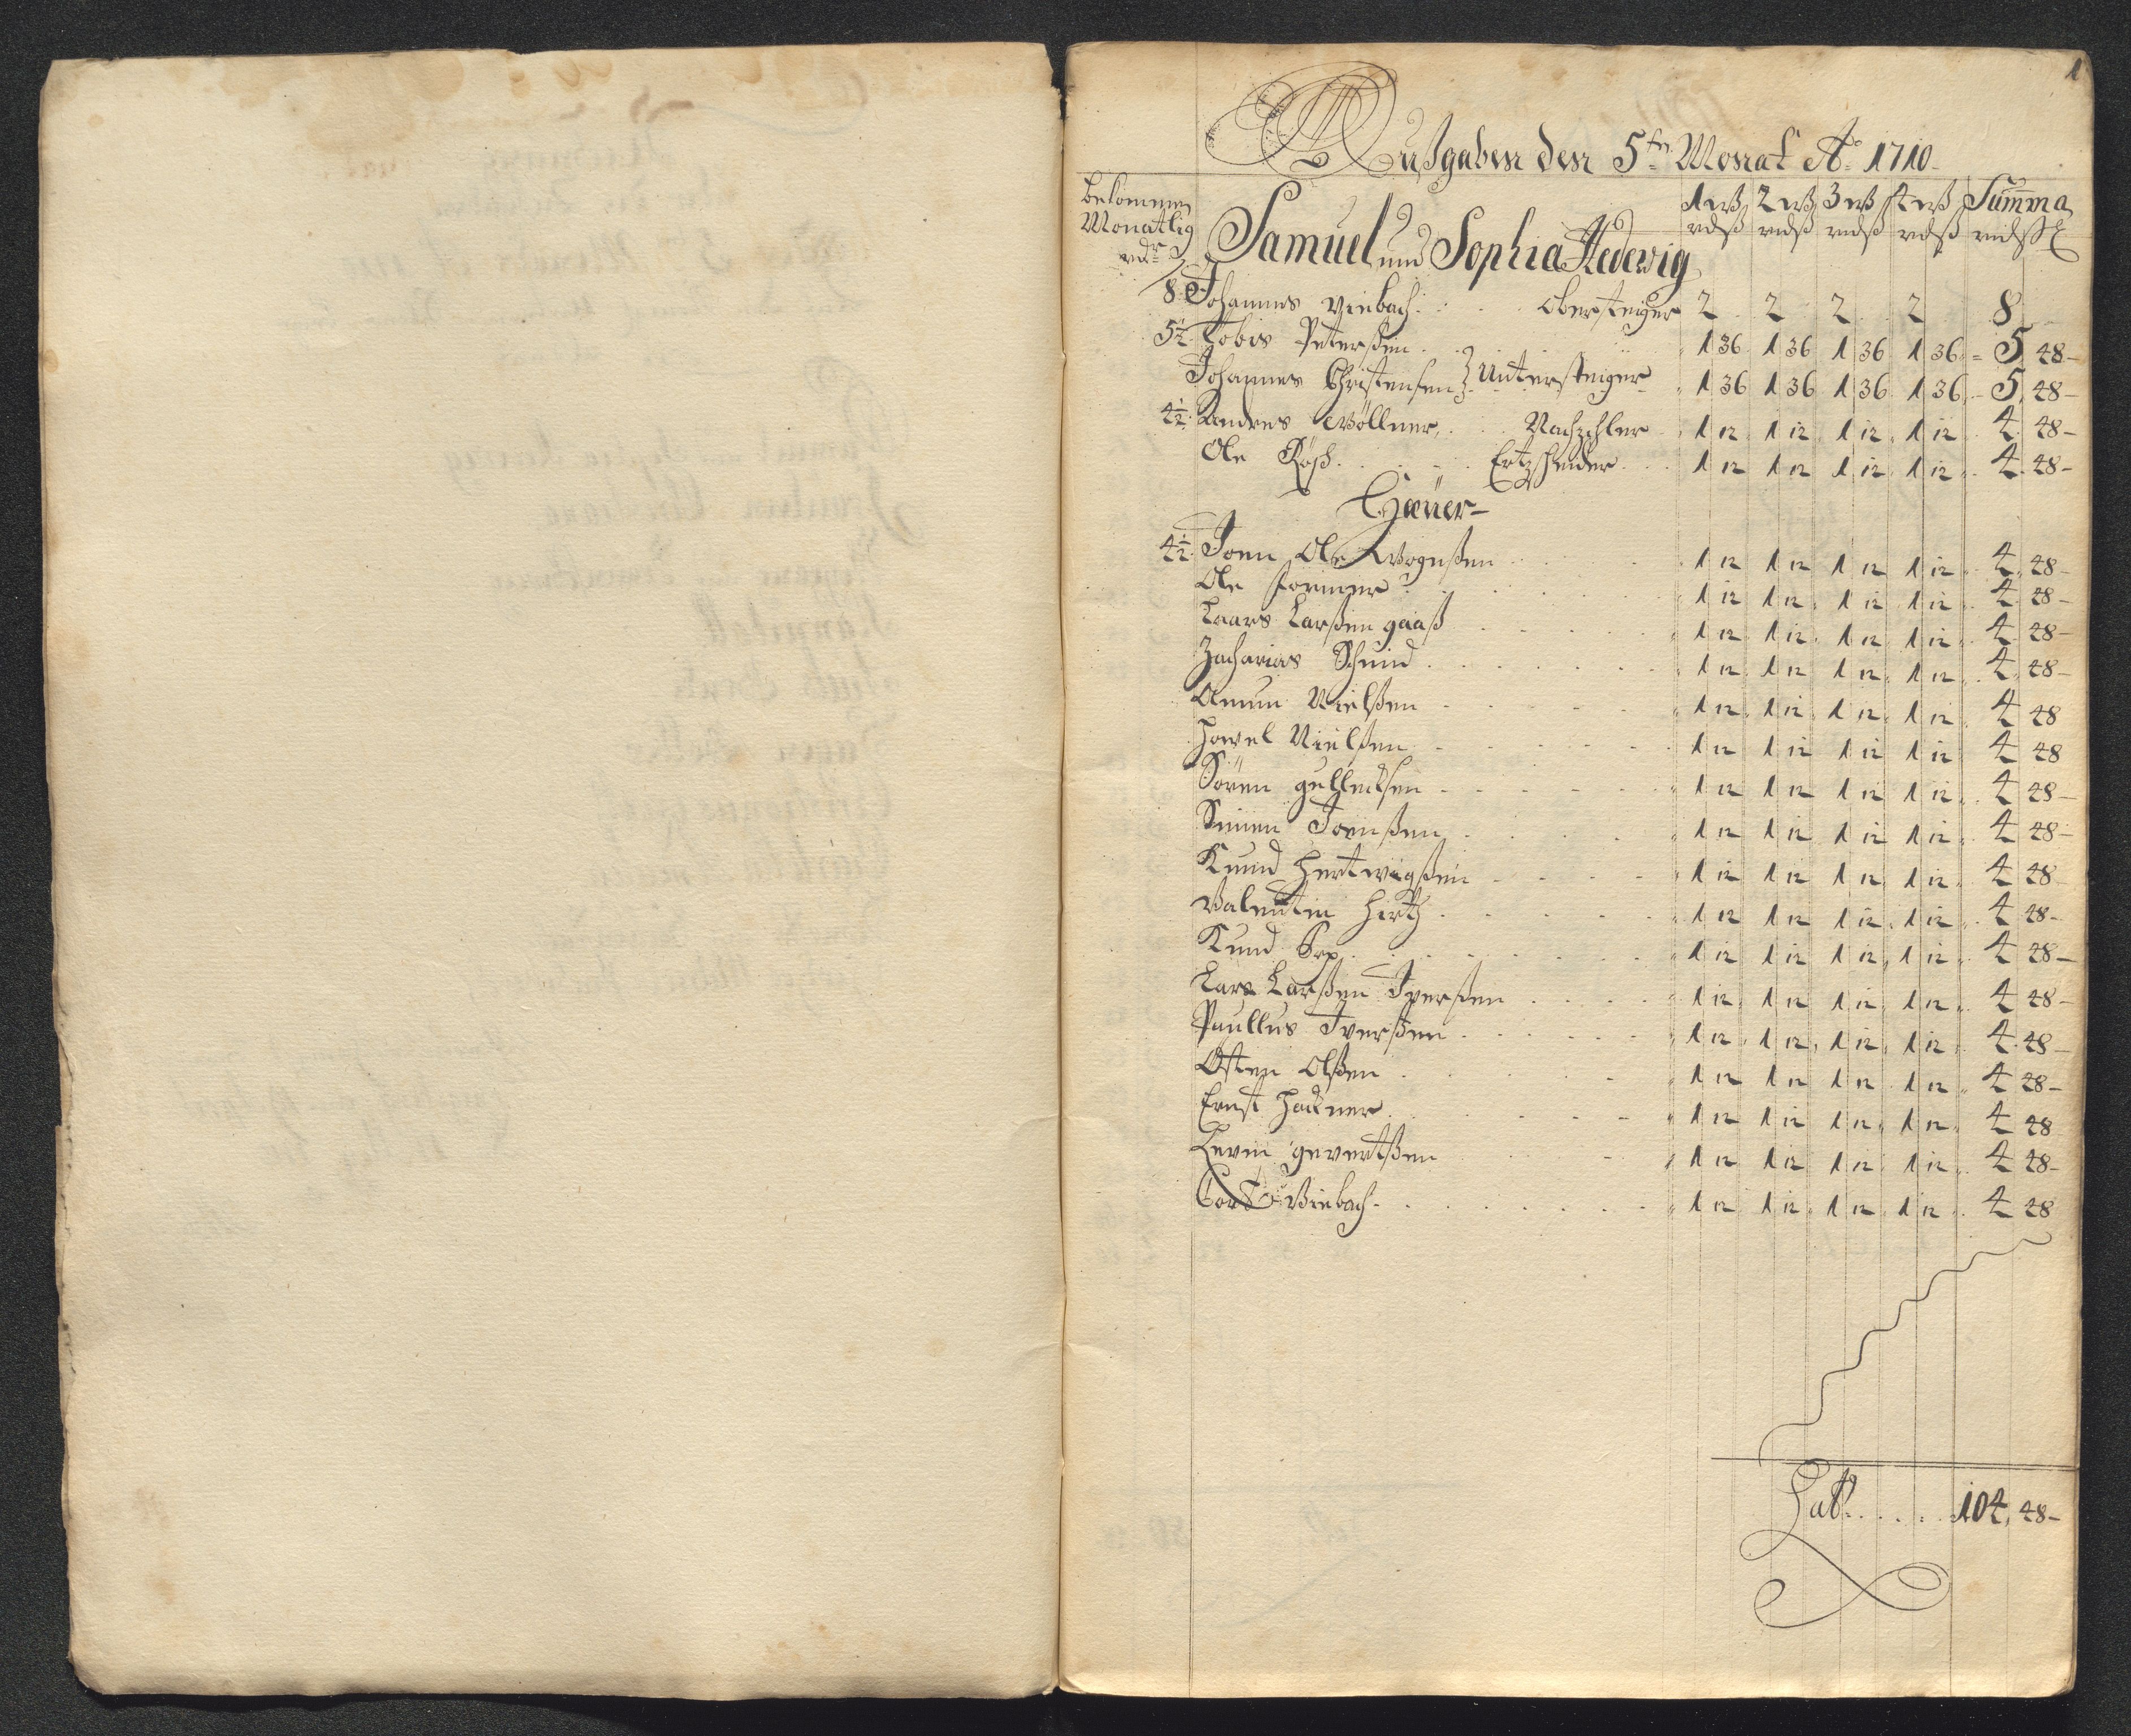 1
Außgaben den 5ten Monat Ao 1710
bekommen Monatlig rdr
1 wß 2 wß 3 wß 4 wß Summa
rdß rdß rdß rdß rdß
Samuel und Sophia Hedewig
8 Johannes Viebach Obersteiger 2 2 2 2 8
5½ Tobis Peterßen 1 36 1 36 1 36 1 36 5 48
Johannes Christensen Untersteiger 1 36 1 36 1 36 1 36 5 48
4½ Andres Wöllner Nachzehler 1 12 1 12 1 12 1 12 4 48
Ole Ertzscheider 1 12 1 12 1 12 1 12 4 48
Hæuer
4½ Joen Ole 1 12 1 12 1 12 1 12 4 48
Ole Former 1 12 1 12 1 12 1 12 4 48
Laars Larßen gaaß 1 12 1 12 1 12 1 12 4 48
Zacharias Schmid 1 12 1 12 1 12 1 12 4 48
Amun Nielßen 1 12 1 12 1 12 1 12 4 48
Howel Nielßen 1 12 1 12 1 12 1 12 4 48
Sören gullecksen 1 12 1 12 1 12 1 12 4 48
Simen Joenßen 1 12 1 12 1 12 1 12 4 48
Knud Hertwigßen 1 12 1 12 1 12 1 12 4 48
Valentin Hirtz 1 12 1 12 1 12 1 12 4 48
Knud 1 12 1 12 1 12 1 12 4 48
Lars Larßen Iverßen 1 12 1 12 1 12 1 12 4 48
Paullus Iverßen 1 12 1 12 1 12 1 12 4 48
Osten Olßen 1 12 1 12 1 12 1 12 4 48
Ernst Hackner 1 12 1 12 1 12 1 12 4 48
Levin gevertßen 1 12 1 12 1 12 1 12 4 48
Cort Viebach 1 12 1 12 1 12 1 12 4 48
Latß 104 48